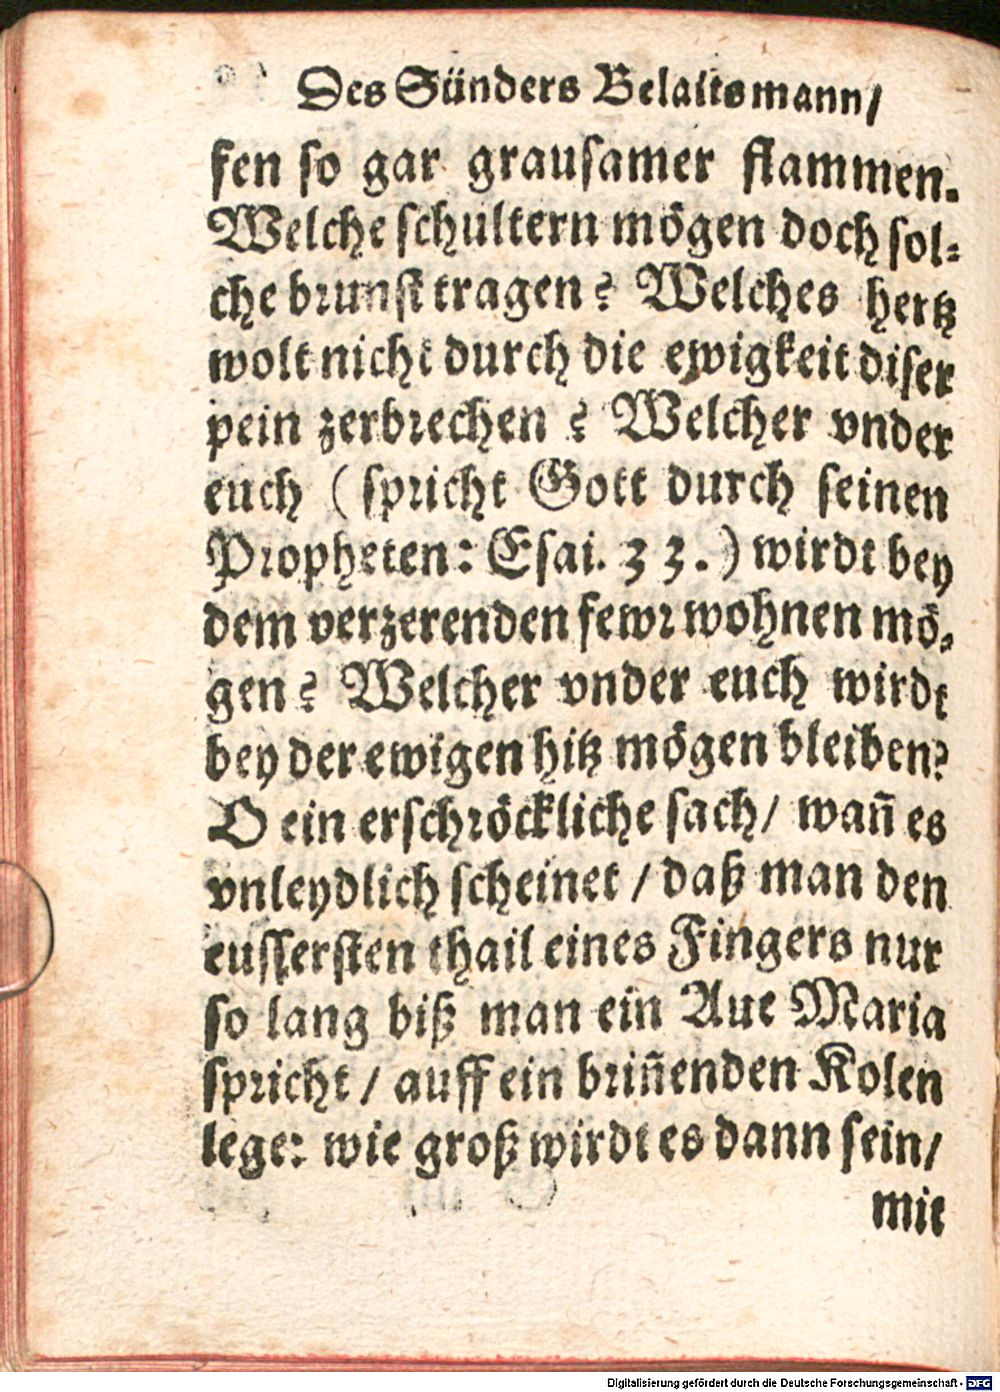 Des Sünders Belaitsmann/
fen so gar grausamer flammen.
Welche schultern mögen doch sol-
che brunst tragen? Welches hertz
wolt nicht durch die ewigkeit diser
pein zerbrechen? Welcher vnder
euch (spricht Gott durch seinen
Propheten: Esai. 33.) wirdt bey
dem verzerenden fewr wohnen mö-
gen? Welcher vnder euch wirdt
bey der ewigen hitz mögen bleiben?
O ein erschröckliche sach/ wañ es
vnleydlich scheinet / daß man den
eussersten thail eines Fingers nur
so lang biß man ein Aue Maria
spricht / auff ein briñenden Kolen
lege: wie groß wirdt es dann sein/
mit
Digitalisierung gefördert durch die Deutsche Forschungsgemeinschaft - DFG